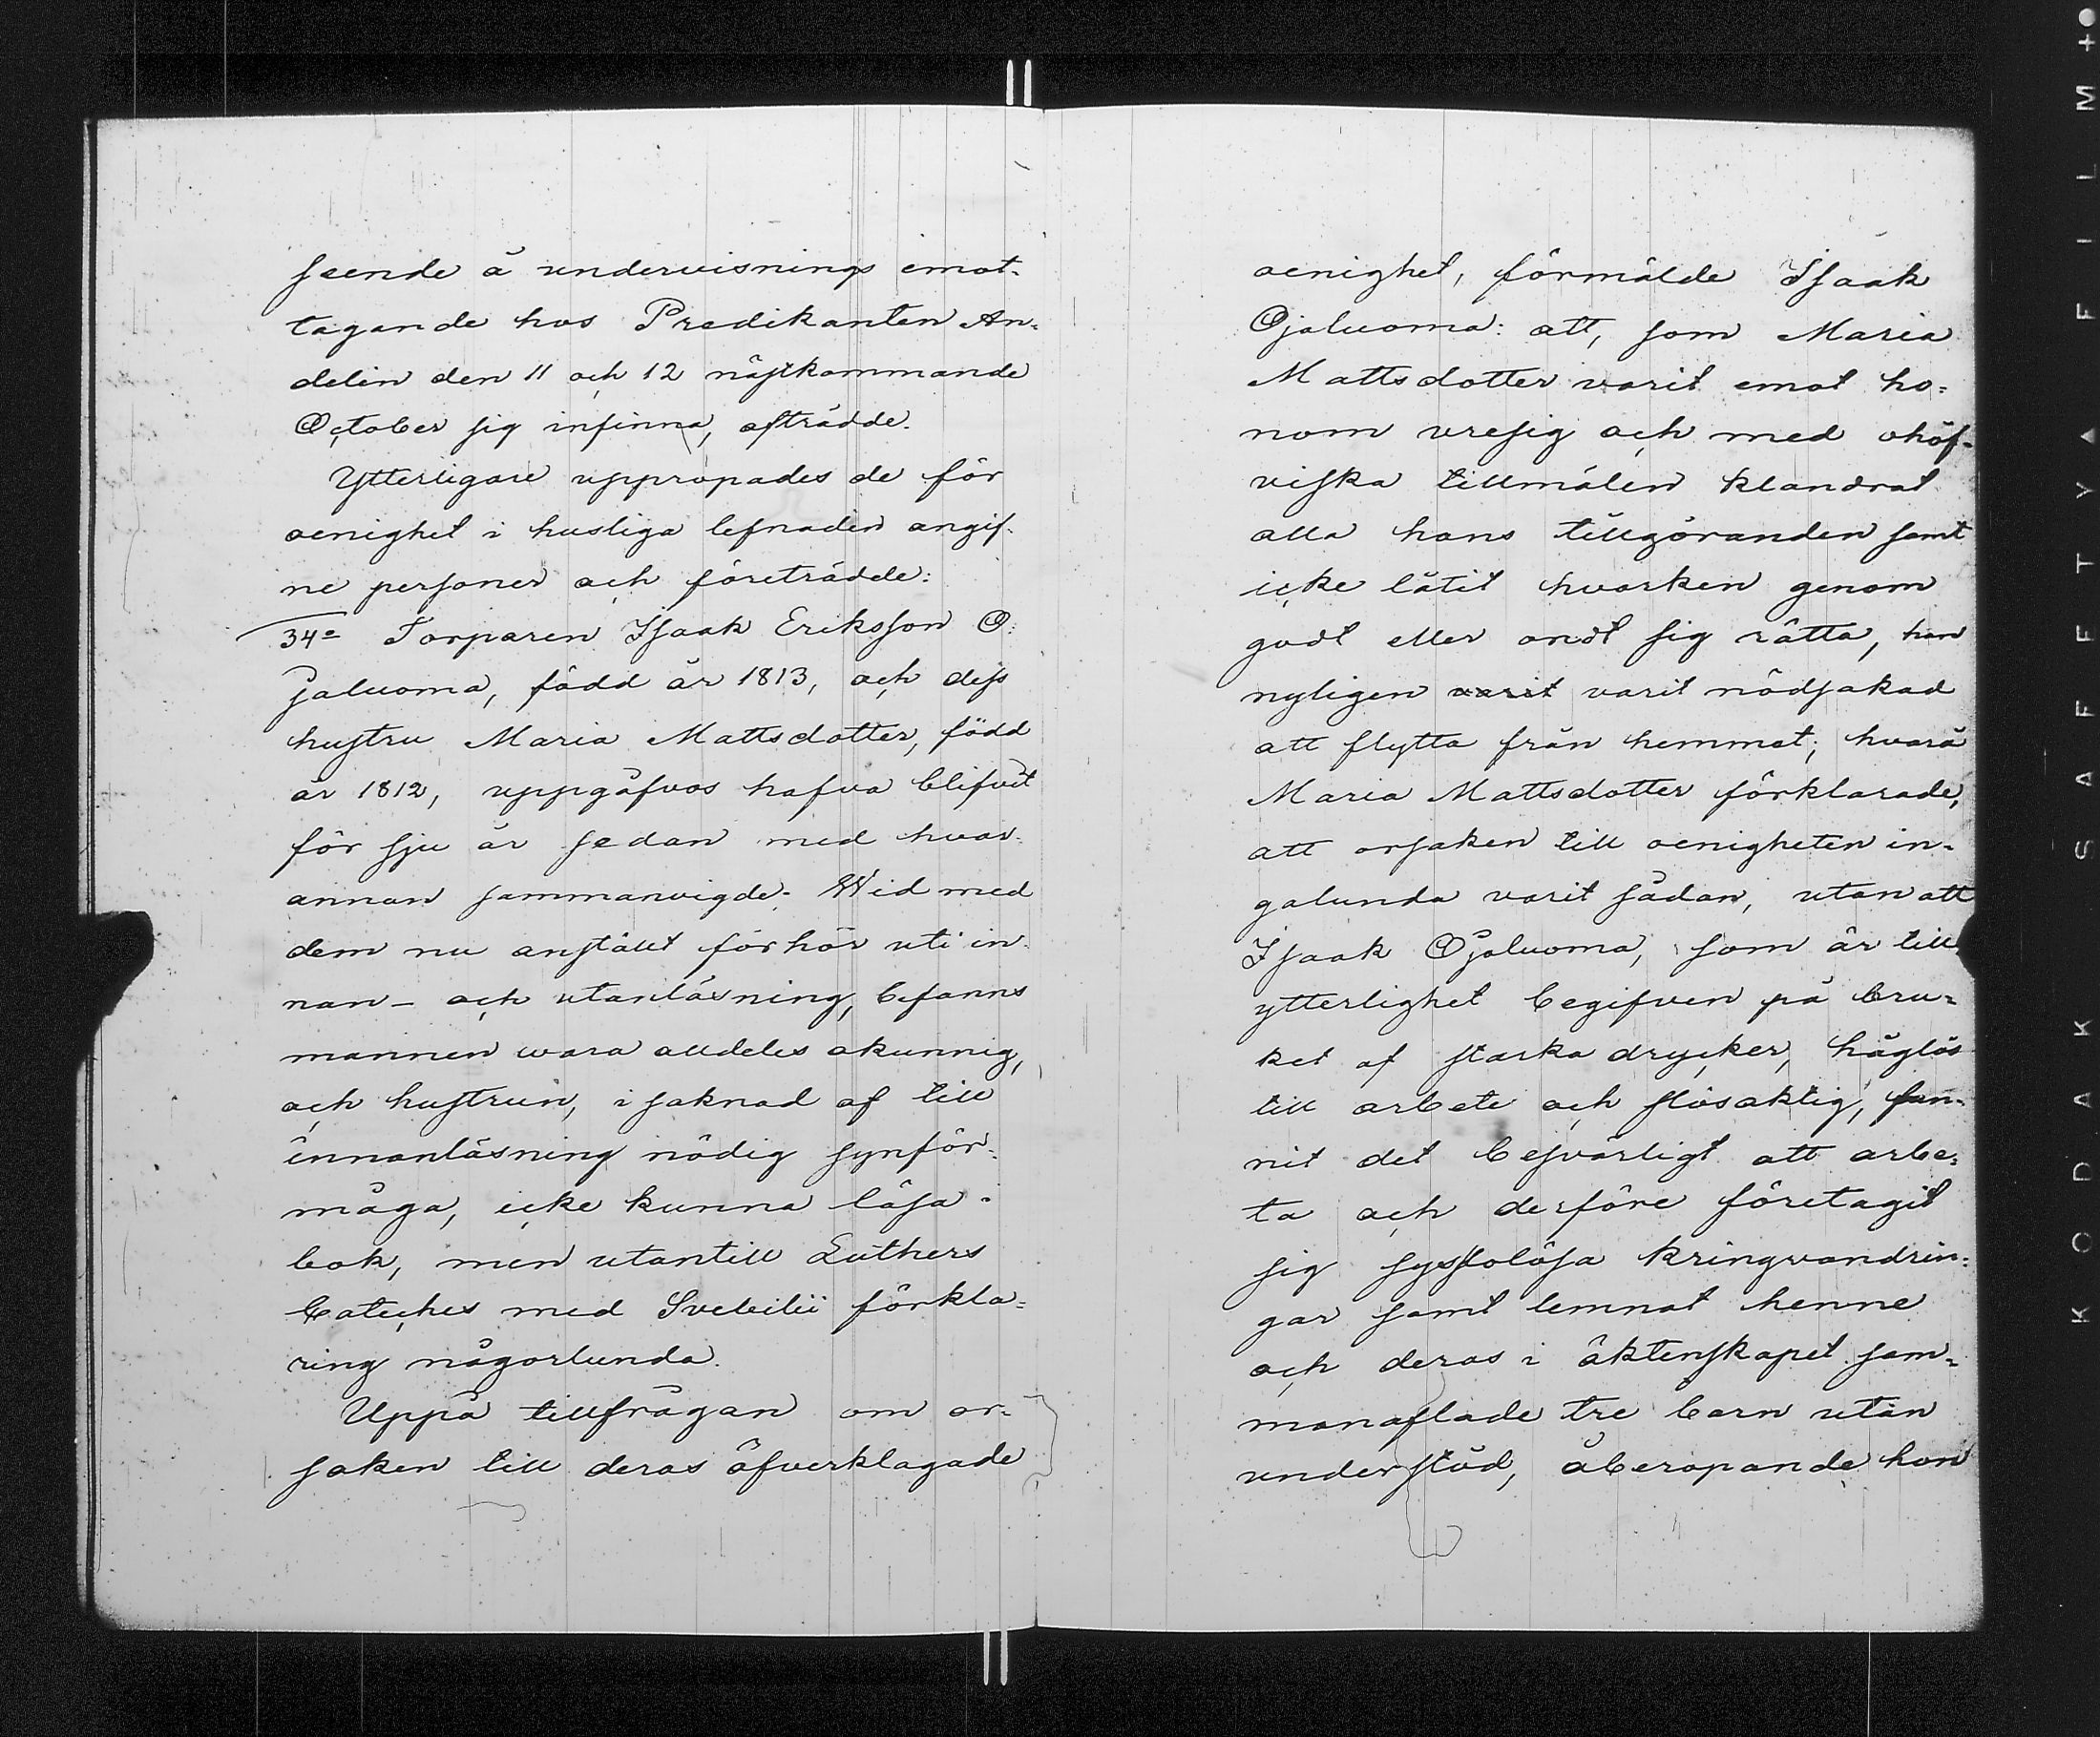 seende å undervisnings emot-
tagande hos Predikanten An-
delin den 11 och 12 nästkommande
October sig infinna, afträdde.
Ytterligare uppropades de för
oenighet i husliga lefnaden angif-
ne personer och företrädde:
34o Torparen Isaak Eriksson O-
jaluoma, född år 1813, och dess
hustru Maria Mattsdotter, född
år 1812, uppgåfvos hafva blifvit
för sju år sedan med hvar-
annan sammanvigde. Wid med
dem nu anställt förhör uti in-
nan- och utanläsning, befanns
mannen wara alldeles okunnig,
och hustrun, i saknad af till
innanläsning nödig synför-
måga, icke kunna läsa i
bok, men utantill Luthers
Cateches med Svebilii förkla-
ring någorlunda.
Uppå tillfrågan om or-
saken till deras öfverklagade
oenighet, förmälde Isaak
Ojaluoma: att, som Maria
Mattsdotter varit emot ho-
nom vresig och med ohöf-
viska tillmälen klandrat
alla hans tillgöranden samt
icke låtit hvarken genom
godt eller ondt sig rätta, han
nyligen varit varit nödsakad
att flytta från hemmet; hvarå
Maria Mattsdotter förklarade,
att orsaken till oenigheten in-
galunda varit sådan, utan att
Isaak Ojaluoma, som är till
ytterlighet begifven på bru-
ket af starka drycker, håglös
till arbete och slösaktig, fun-
nit det besvärligt att arbe-
ta och derföre företagit
sig sysslolösa kringvandrin-
gar samt lemnat henne
och deras i äktenskapet sam-
manaflade tre barn utan
understöd, åberopande hon
KODAK SAFETY A FILM